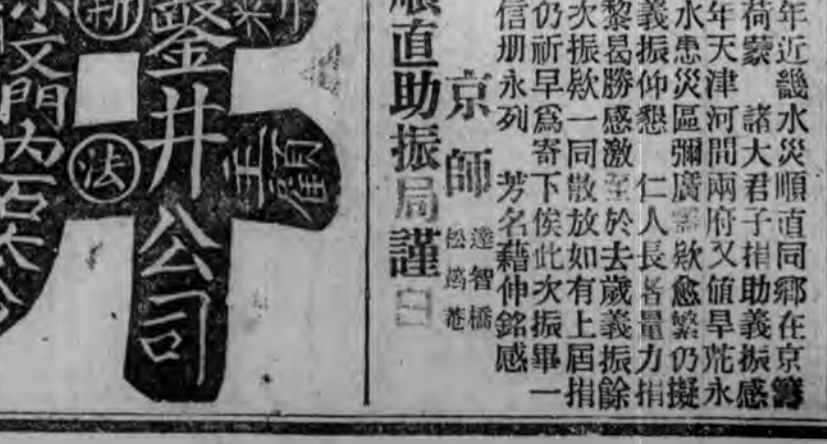 年近畿水災順直同鄉在京籌
荷蒙　諸大君子捐助義振感
年天津河間兩府又值旱荒永
水患災區彌廣需欵愈繁仍擬
義振仰懇　仁人長者量力捐
黎曷勝感激至於去歲義振餘
次振欵一同散放如有上屆捐
仍祈早爲寄下俟此次振畢一
信册永列　芳名藉伸銘感
京師
達智橋
松筠菴
順直助振局謹白
顧主
鑿井公司
法
文門內石大